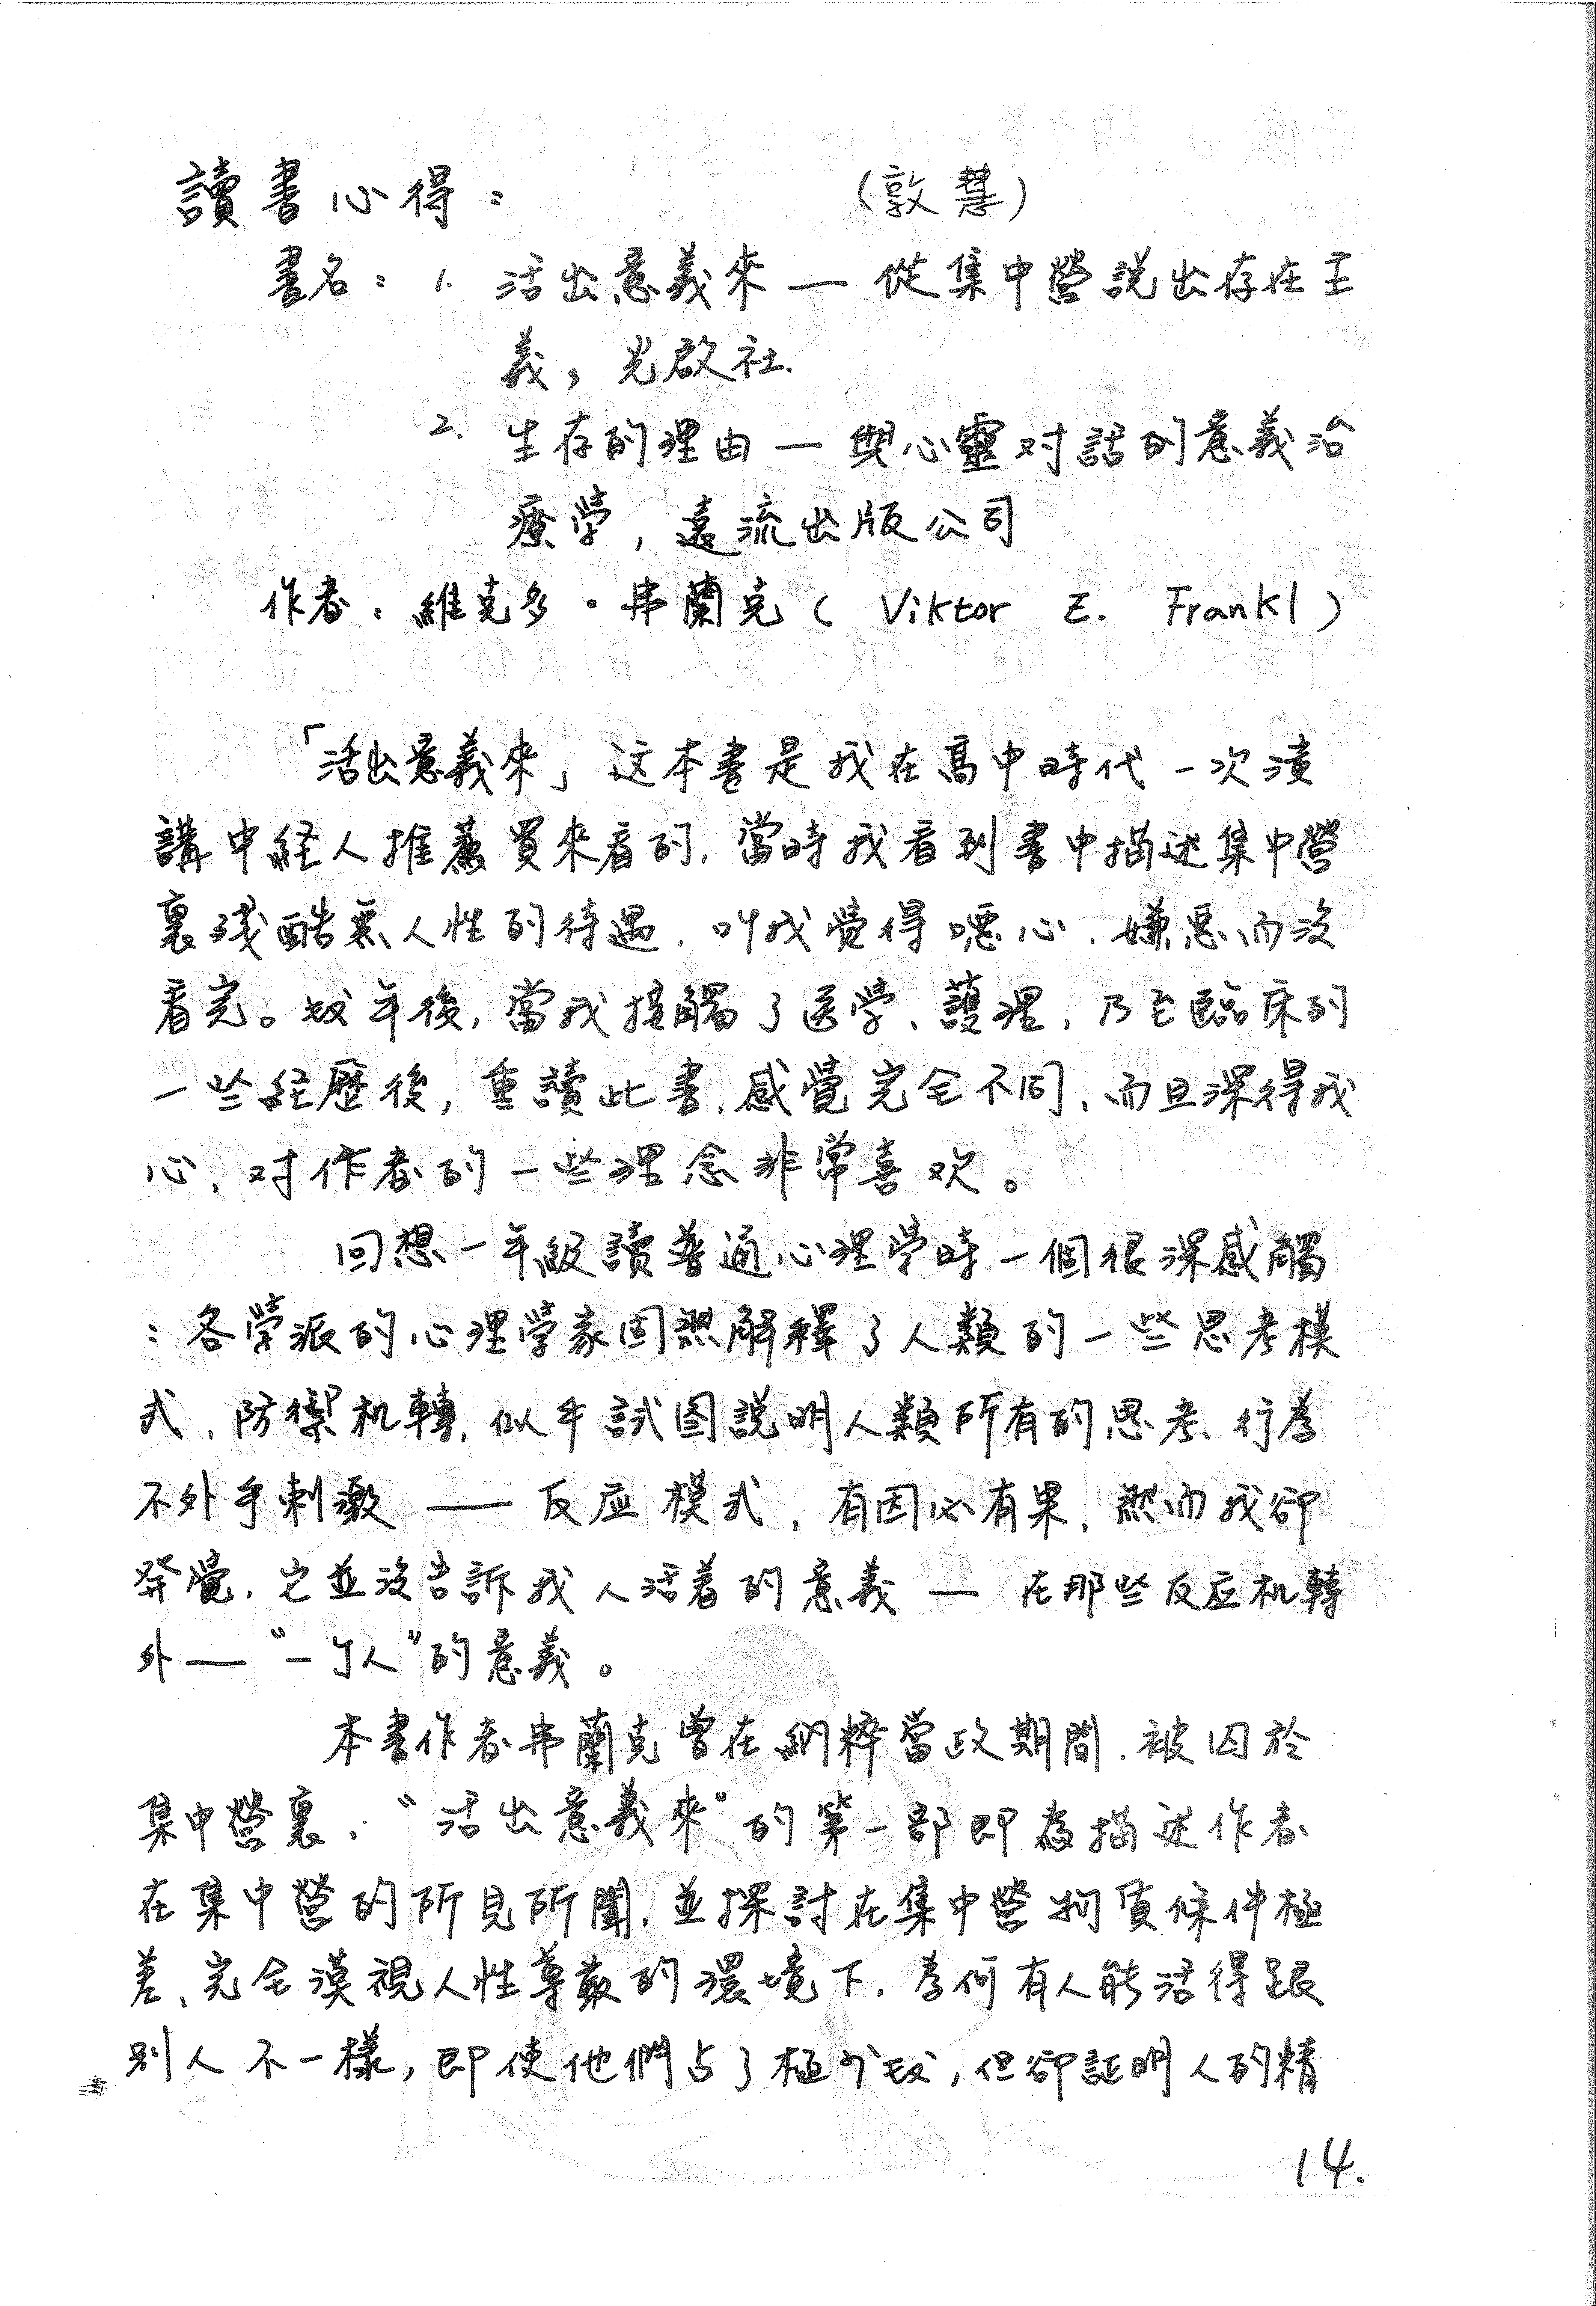 讀書心得： （敦慧）
書名：1. 活出意義來 — 從集中營說出存在主
義，光啟社.
2. 生存的理由 — 與心靈对話的意義治
療學，遠流出版公司
作者：維克多・弗蘭克（Viktor E. Frankl）
「活出意義來」这本書是我在高中時代一次演
講中経人推薦買來看的，當時我看到書中描述集中營
裏殘酷無人性的待遇，叫我覺得噁心、嫌惡而沒
看完。数年後，當我接觸了医学、護理，乃至臨床的
一些経歷後，重讀此書，感覺完全不同，而且深得我
心，对作者的一些理念非常喜欢。
回想一年級讀普通心理学時一個很深感觸
：各學派的心理学家固然解釋了人類的一些思考模
式，防禦机轉，似乎試图說明人類所有的思考、行為
不外乎刺激 —— 反应模式，有因必有果，然而我卻
発覺，它並沒告訴我人活着的意義 — 在那些反应机轉
外 —“一个人”的意義。
本書作者弗蘭克曾在納粹當政期間，被囚於
集中營裏，“活出意義來”的第一部即為描述作者
在集中營的所見所聞，並探討在集中營物質條件極
差、完全漠視人性尊嚴的環境下，為何有人能活得跟
別人不一樣，即使他們占了極少数，但卻証明人的精
14.